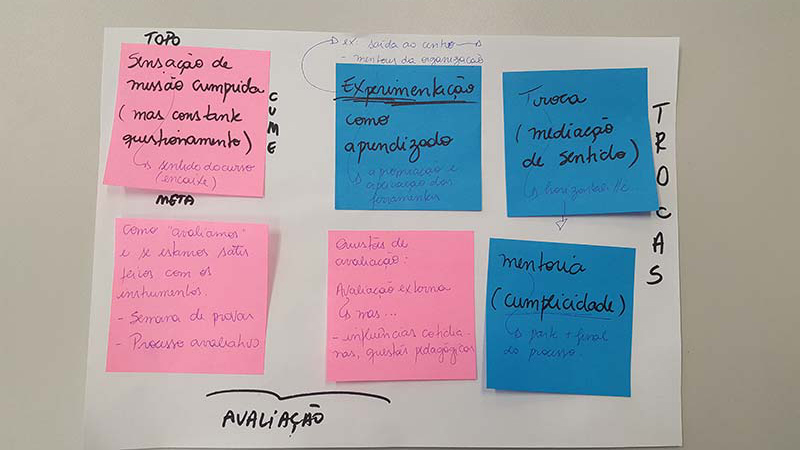 TOPO
Sensação de
missão cumprida
(mas constante
questionamento)
↳ sentido do curso
(encaixe)
CUME
META
ex: saída ao centro
- mentores da organização
Experimentação
como
aprendizado
↳ apropriação e
aplicação das
ferramentas
Troca
(mediação
de sentido)
↳ horizontal
TROCAS
Como "avaliamos"
e se estamos satis
feitos com os
instrumentos.
- Semana de provas
- Processo avaliativo.
Questões de
avaliação:
Avaliação externa
↳ mas...
- influências cotidia
nas, questões pedagógicas
mentoria
(cumplicidade)
↳ parte + final
do processo.
AVALIAÇÃO